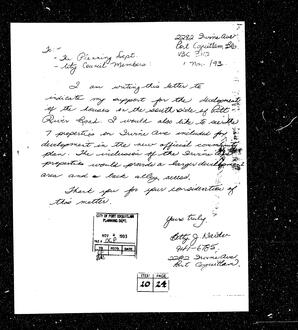 2282 Irvine Ave
Port Coquitlam Bc
V3C
1 Nov /93
To:
- The Planning Dept.
- City Council Members
I am writing this letter to
indicate my support for the development
of the houses on the South side of Pitt
River Road. I would also like to see the
7 properties on Irvine Ave included for
development in the new official community
plan. The inclusion of the Irvine
properties would provide a larger development
area and a back alley access.
Thank you for your consideration of
this matter.
Yours truly,
2282 Irvine Ave
Port Coquitlam
CITY OF PORT COQUITLAM
PLANNING DEPT.
NOV 1993
FILE # OCP
TO
ITEM PAGE
10 24